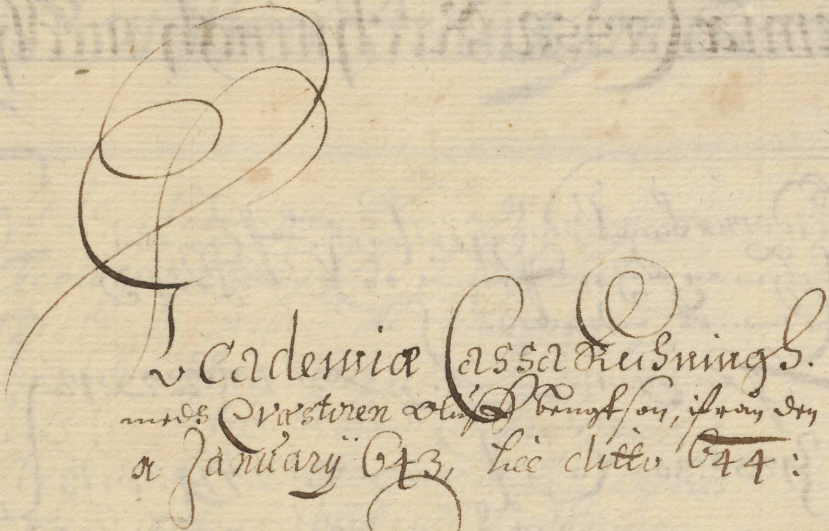 Academiæ Cassa Rechningh.
medh Qvæstoren Oluff bengtson, ifrån den
a Januarÿ 643, till ditto 644: